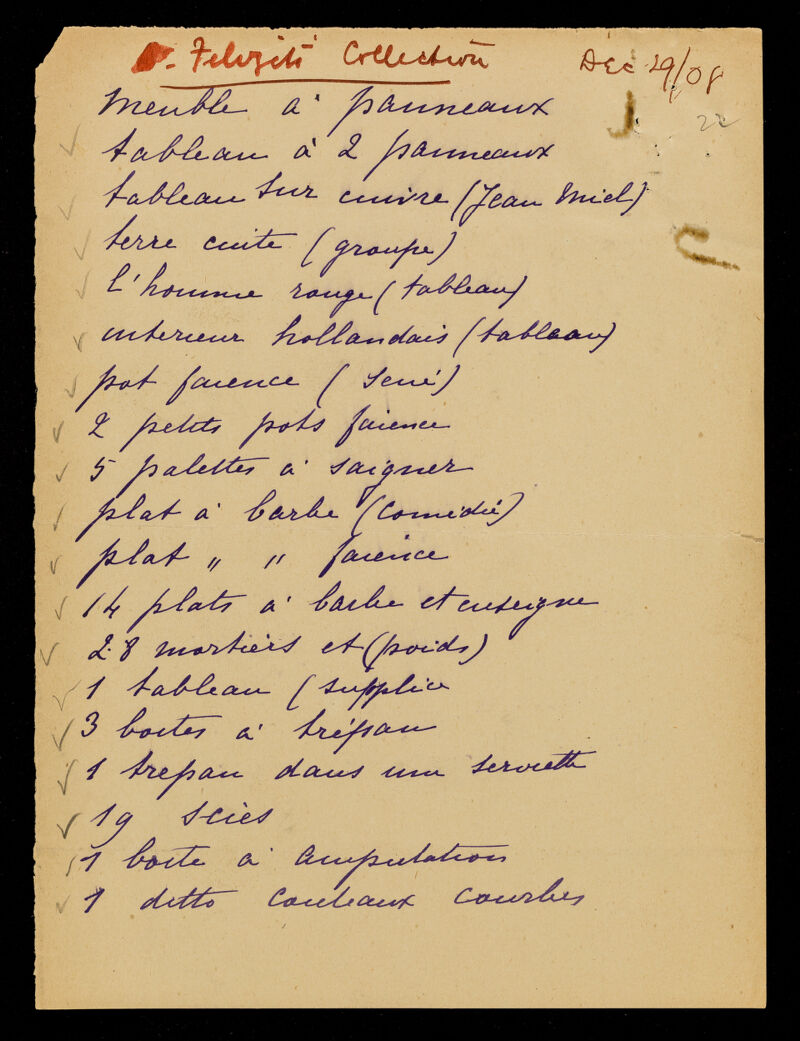 Collection Dec 29/08
22
meuble à panneaux
tableau à 2 panneaux
tableau sur cuivre (Jean Miel)
terre cuite (groupe)
l'homme rouge (tableau)
interieur hollandais (tableau)
pot faience (
2 petits pots faience
5 palettes à saigner
plat à barbe (comédie)
plat " " faience
14 plats à barbe et enseigne
28 mortiers et (poids)
1 tableau (supplice
3 boites à trépan
1 trepan dans une serviette
19 scies
1 boite à amputation
1 ditto couteaux courbes